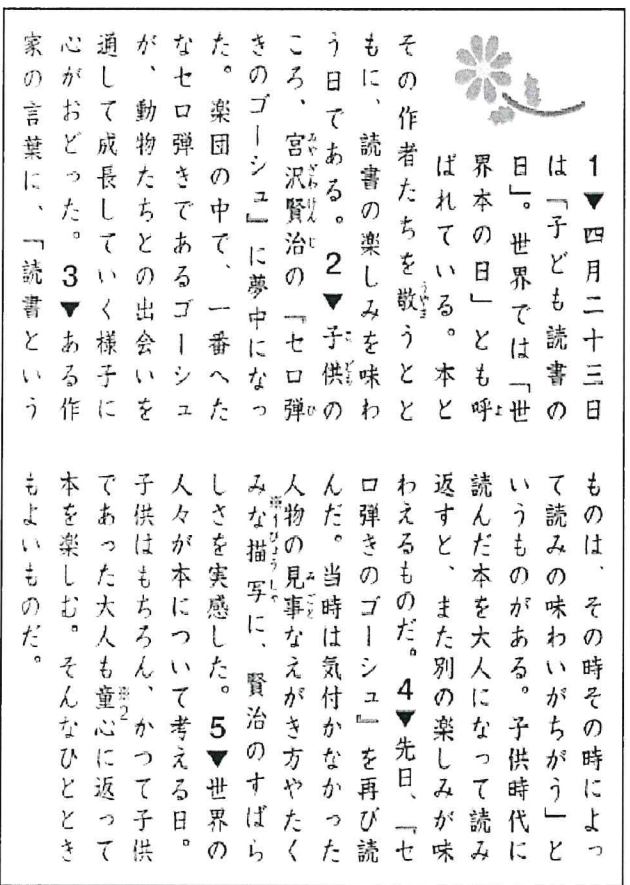 1▼四月二十三日
は「子ども読書の
日」。世界では「世
よ
界本の日」とも呼
ばれている。本と
うやま
その作者たちを敬うとと
もに、読書の楽しみを味わ
こ ども
う日である。2▼子供の
みやざわけんじ ひ
ころ、宮沢賢治の『セロ弾
きのゴーシュ』に夢中になっ
た。楽団の中で、一番へた
なセロ弾きであるゴーシュ
が、動物たちとの出会いを
通して成長していく様子に
心がおどった。3▼ある作
家の言葉に、「読書という
ものは、その時その時によっ
て読みの味わいがちがう」と
いうものがある。子供時代に
読んだ本を大人になって読み
返すと、また別の楽しみが味
わえるものだ。4▼先日、『セ
ロ弾きのゴーシュ』を再び読
んだ。当時は気付かなかった
みごと
人物の見事なえがき方やたく
※1びょうしゃ
みな描写に、賢治のすばら
しさを実感した。5▼世界の
人々が本について考える日。
子供はもちろん、かつて子供
※2
であった大人も童心に返って
本を楽しむ。そんなひととき
もよいものだ。